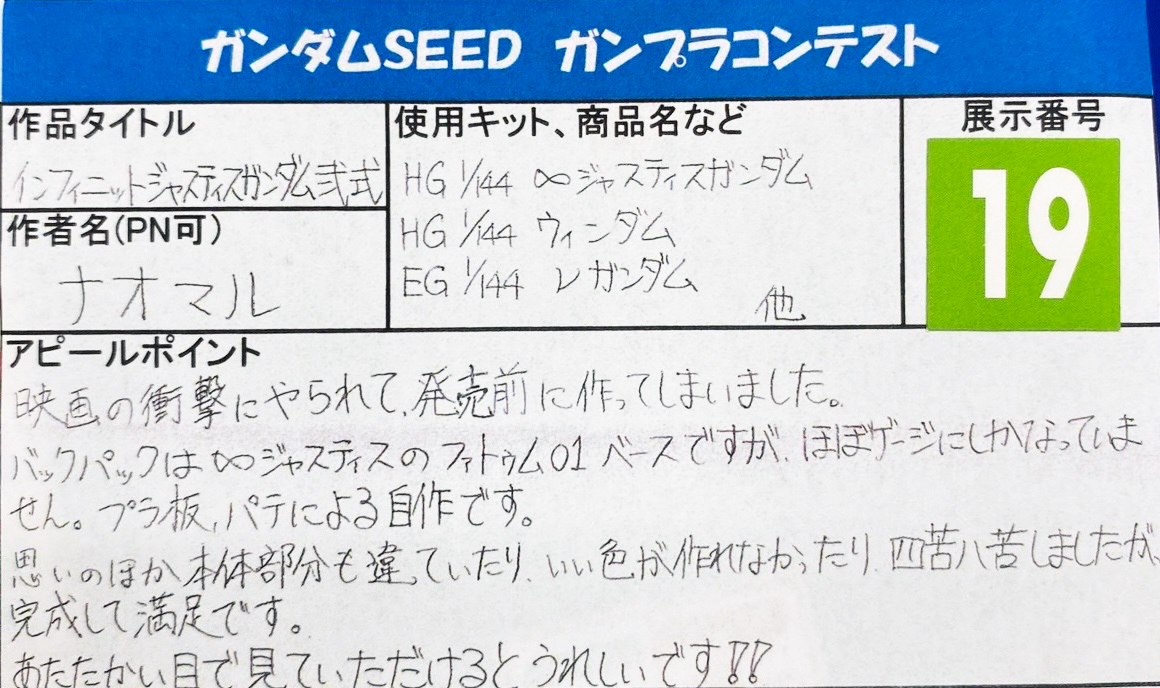 ガンダムSEED ガンプラコンテスト
作品タイトル
インフィニットジャスティスガンダム弐式
作者名(PN可)
ナオマル
使用キット、商品名など
HG 1/144 ∞ジャスティスガンダム
HG 1/144 ウィンダム
EG 1/144 νガンダム
他
展示番号
19
アピールポイント
映画の衝撃にやられて、発売前に作ってしまいました。
バックパックは∞ジャスティスのファトゥム01ベースですが、ほぼゲージにしかなっていま
せん。プラ板、パテによる自作です。
思いのほか本体部分も違っていたり、いい色が作れなかったり、四苦八苦しましたが、
完成して満足です。
あたたかい目で見ていただけるとうれしいです!!